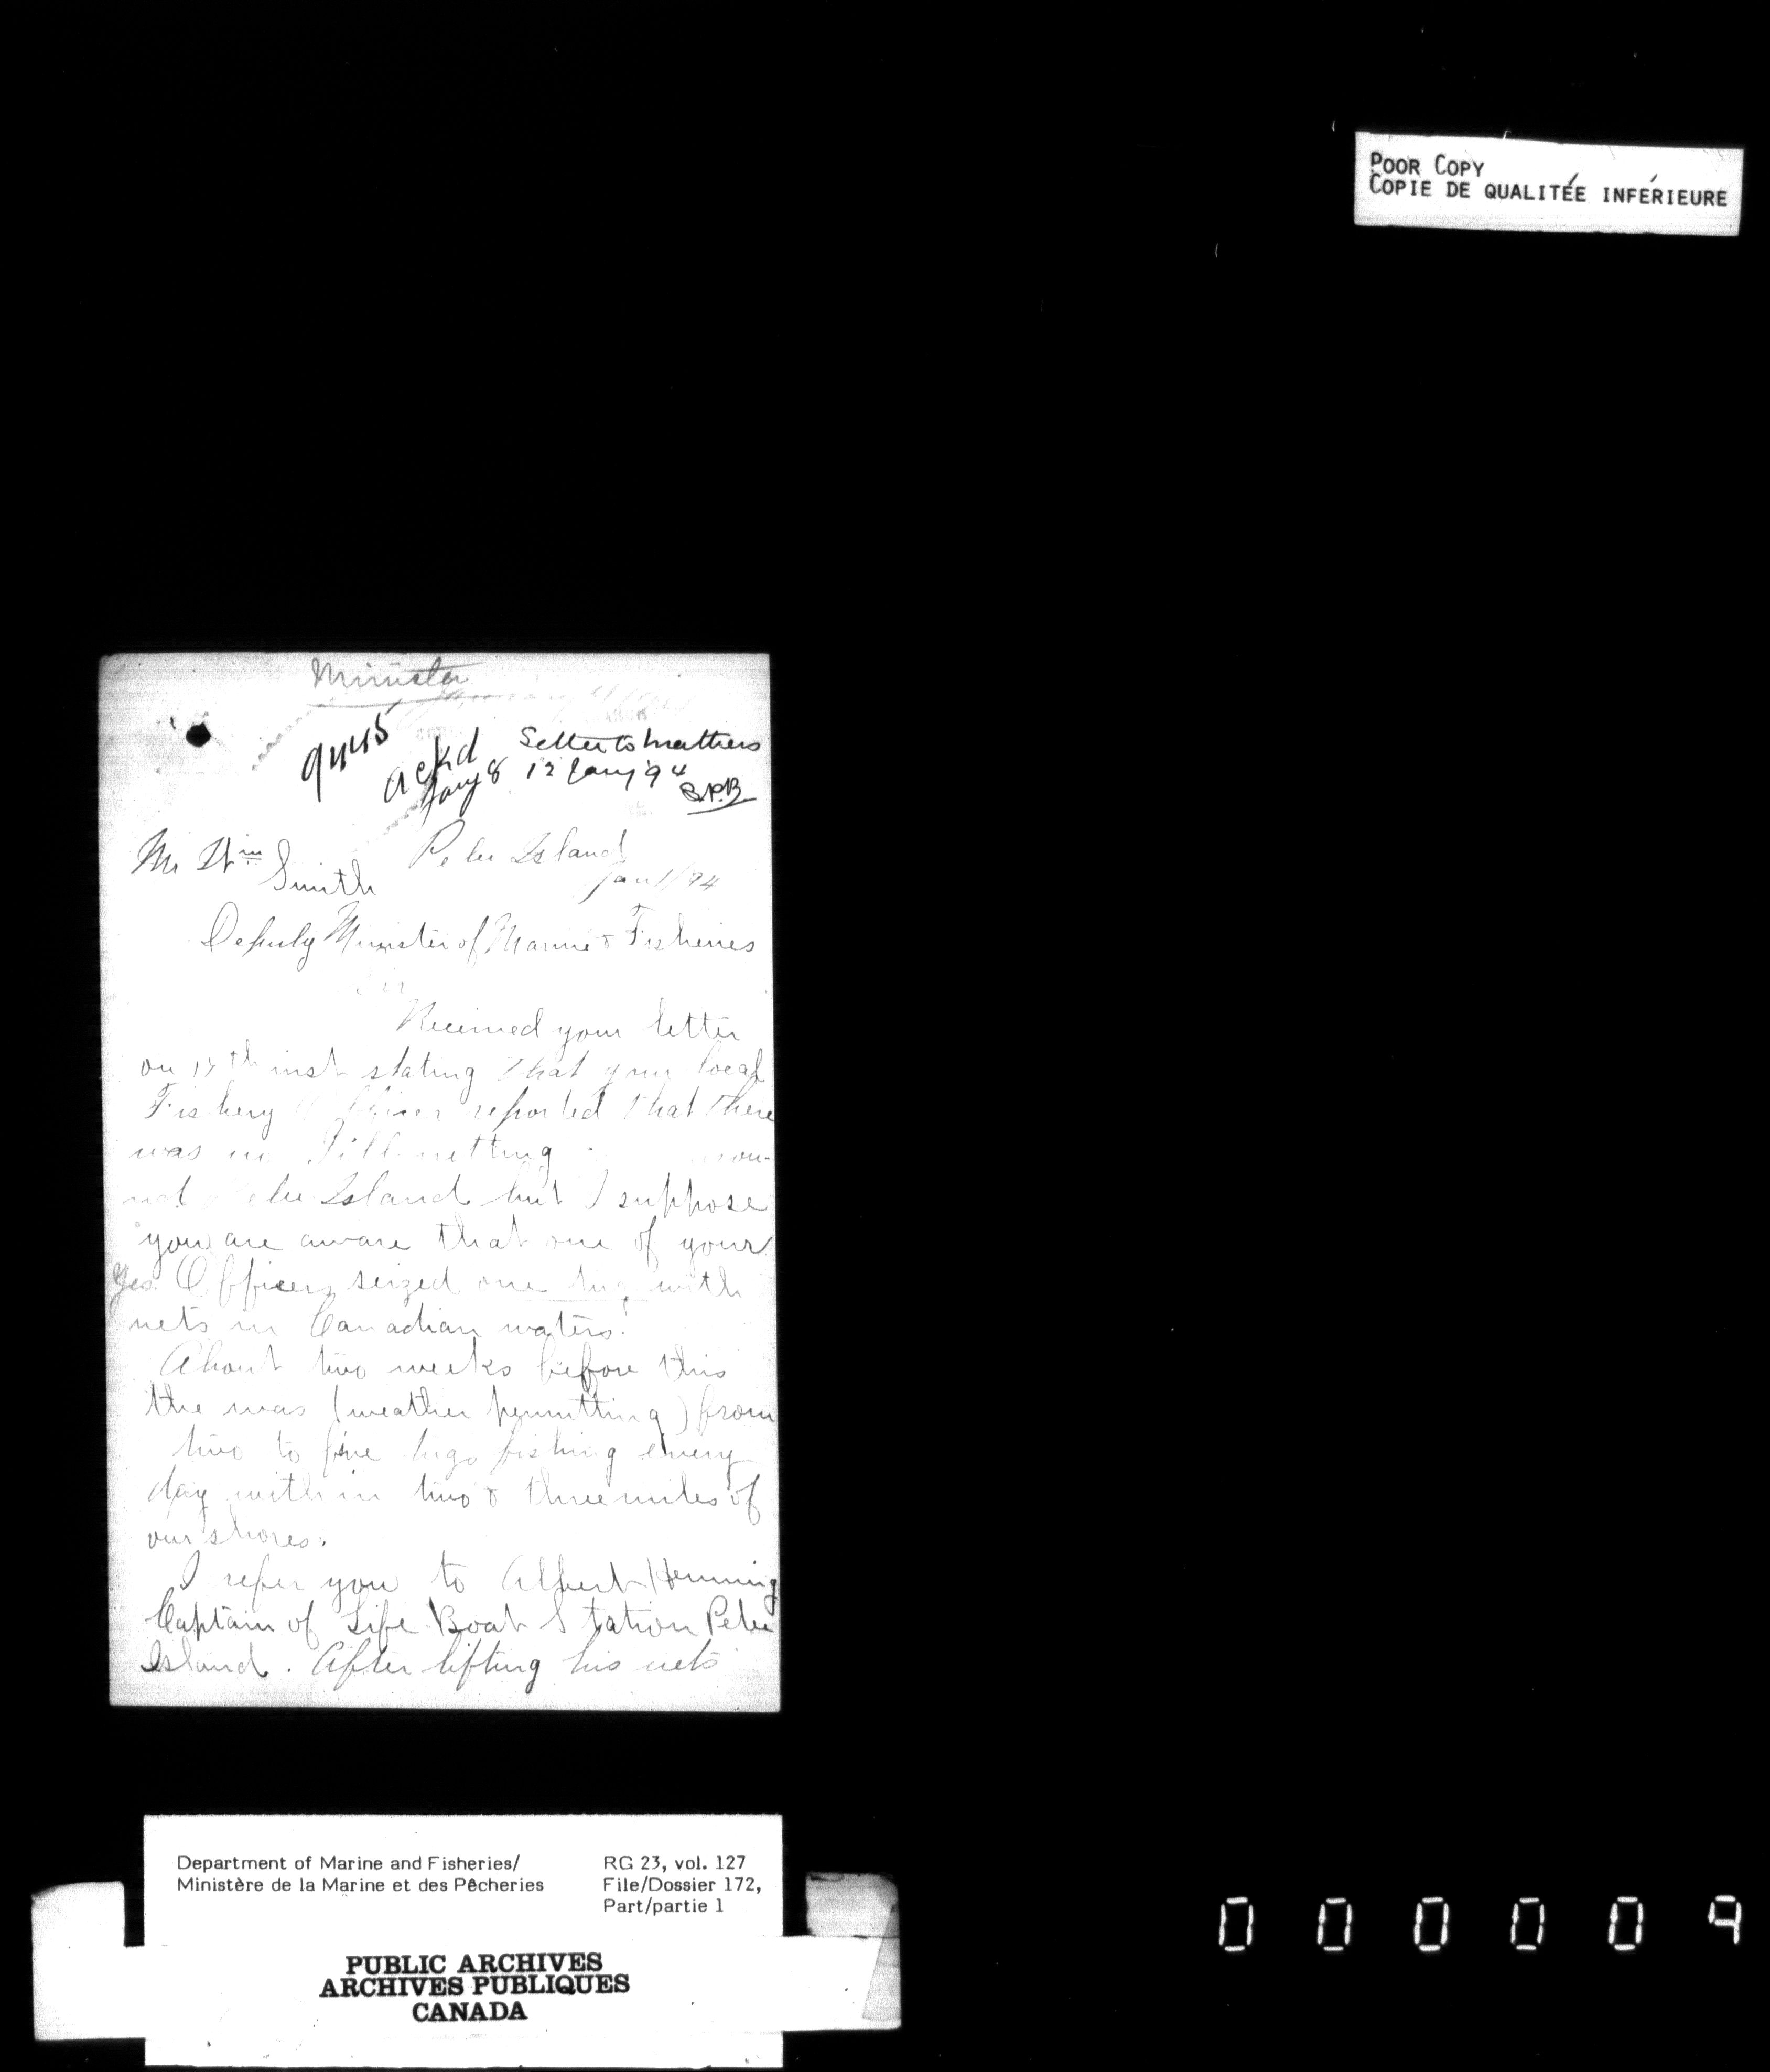 POOR COPY
COPIE DE QUALITÉE INFÉRIEURE
Minister
9445
ackd
Jany 8
Letter to Mathers
12 Jany '94
Pelee Island
Jan 1/94
Mr Wm Smith
Deputy Minister of Marine & Fisheries
Sir
Received your letter
on th inst stating that your local
Fishery Officer reported that there
was no Gill netting
Pelee Island but I suppose
you are aware that one of your
Yes. Officers seized one tug with
nets in Canadian waters.
About two weeks before this
the was (weather permitting) from
two to five tugs fishing every
day within two & three miles of
our shores.
I refer you to Albert Henning
Captain of Life Boat Station Pelee
Island. After lifting his nets
Department of Marine and Fisheries/
Ministère de la Marine et des Pêcheries
RG 23, vol. 127
File/Dossier 172,
Part/partie 1
PUBLIC ARCHIVES
ARCHIVES PUBLIQUES
CANADA
000009